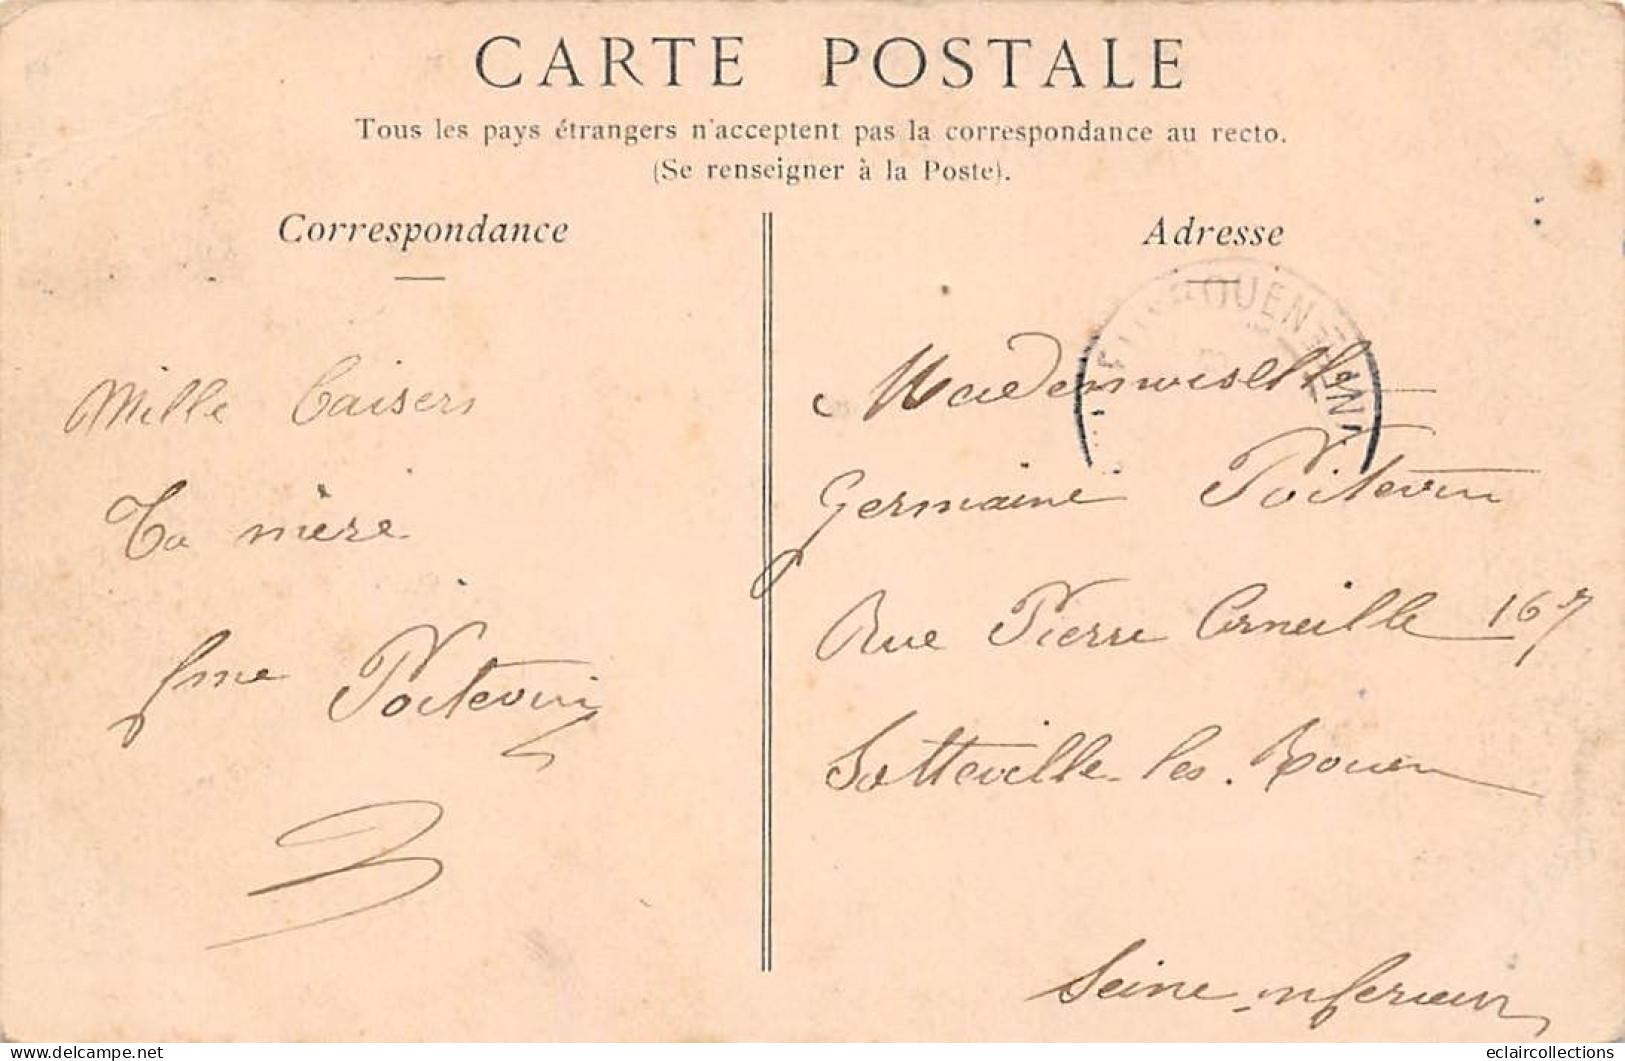 CARTE POSTALE
Tous les pays étrangers n'acceptent pas la correspondance au recto.
(Se renseigner à la Poste).
Correspondance
Mille Baisers
Ta mère
fme Poitevin
Adresse
ROUEN
Mademoiselle
Germaine Poitevin
Rue Pierre Corneille 167
Sotteville-les-Rouen
Seine-inferieur
eclaircollections